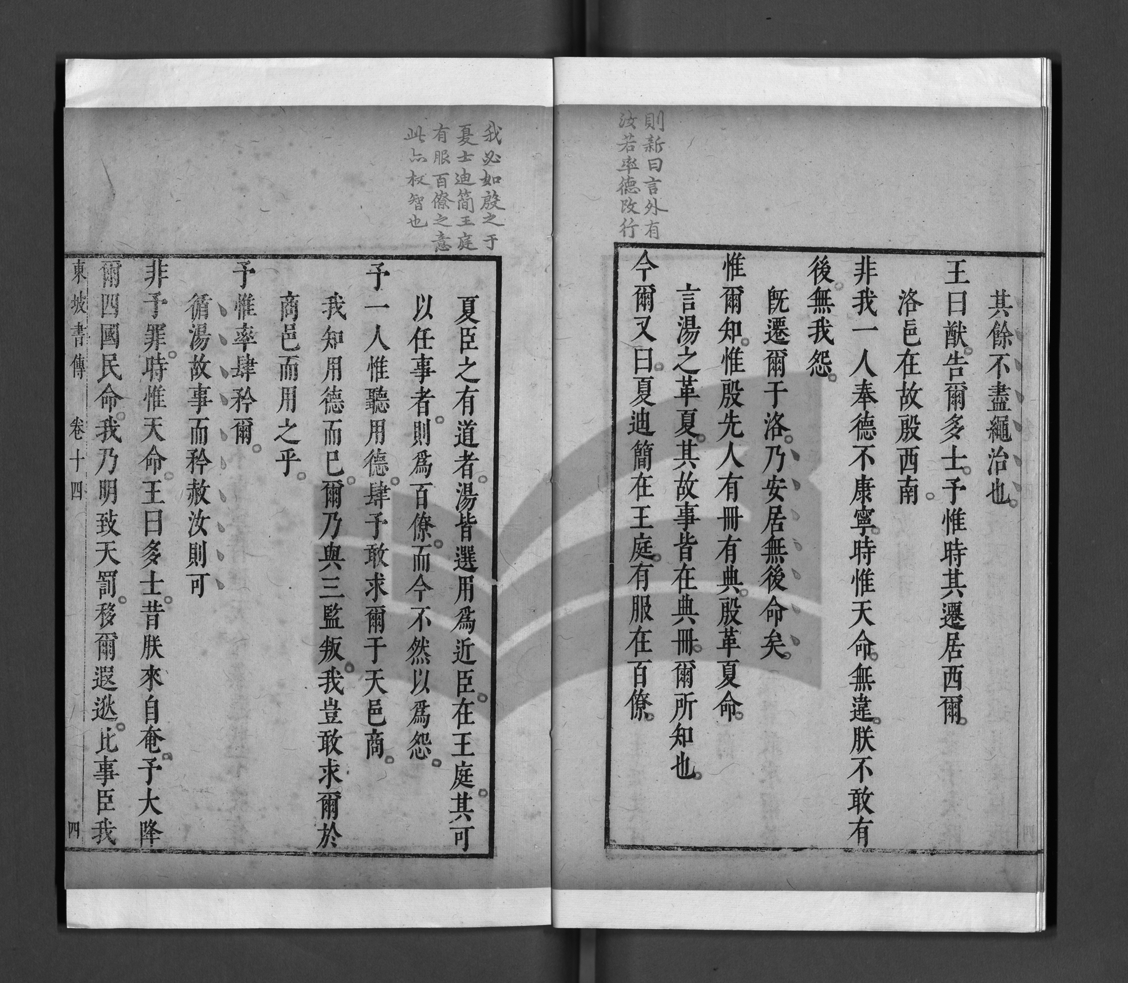 則新曰言外有
汝若率德改行
其餘不盡繩治也。
王曰猷。告爾多士。予惟時其遷居西爾。
洛邑在故殷西南。
非我一人奉德不康寧。時惟天命。無違。朕不敢有
後。無我怨。
旣遷爾于洛。乃安居無後命矣。
惟爾知。惟殷先人有冊有典。殷革夏命。
言湯之革夏。其故事皆在典冊。爾所知也。
今爾又曰。夏迪簡在王庭。有服在百僚。
我必如殷之于
夏士迪簡王庭
有服百僚之意
此亦权智也
夏臣之有道者。湯皆選用爲近臣。在王庭。其可
以任事者。則爲百僚。而今不然以爲怨。
予一人惟聽用德。肆予敢求爾于天邑商。
我知用德而已。爾乃與三監叛。我豈敢求爾於
商邑而用之乎。
予惟率肆矜爾。
循湯故事而矜赦汝則可
非予罪。時惟天命。王曰多士。昔朕來自奄。予大降
爾四國民命。我乃明致天罰。移爾遐逖。比事臣我
東坡書傳 卷十四 四